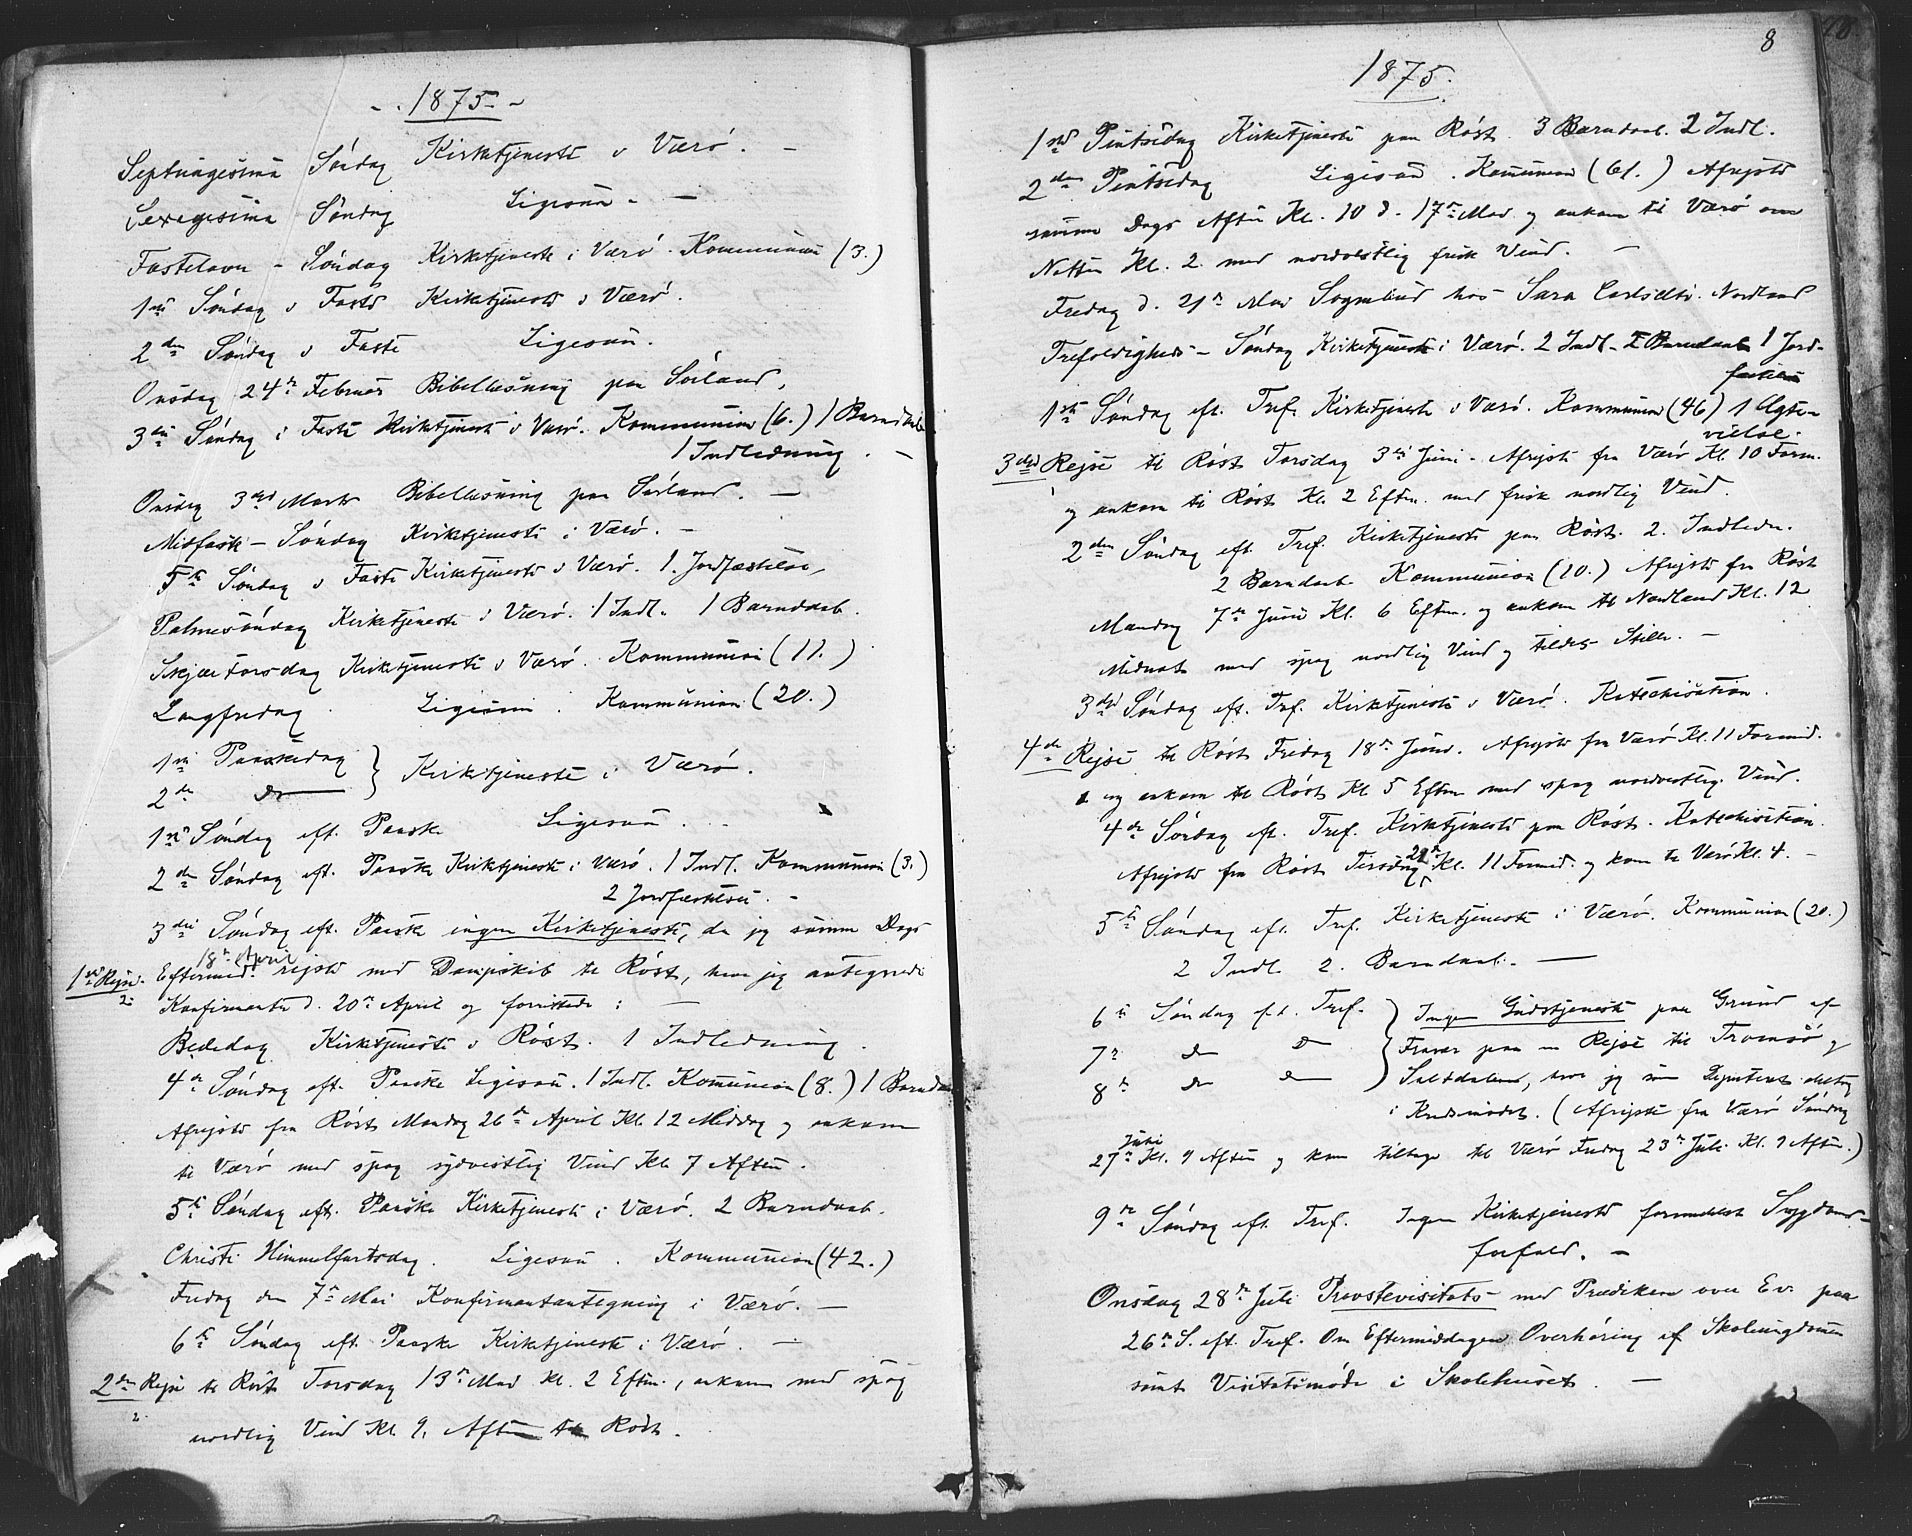 - . 1875 - ~
Septuagesima Söndag Kirketjeneste i Værö. -
Sexagesima Söndag Ligesaa. -
Fastelavn - Söndag Kirketjeneste i Værö. Kommunion (3.)
1ste Söndag i Faste Kirketjeneste i Værö.
2den Söndag i Faste Ligesaa.
Onsdag 24de Februar Bibellæsning paa Sörland.
3die Söndag i Faste Kirketjeneste i Værö. Kommunion (6.) 1 Barndaab
1 Indledning. -
Onsdag 3die Marts Bibellæsning paa Sörland. -
Midfaste - Söndag Kirketjeneste i Værö. -
5te Söndag i Faste Kirketjeneste i Værö. 1. Jordfæstelse,
Palmesöndag Kirketjeneste i Værö. 1 Indl. 1 Barndaab.
Skjærtorsdag Kirketjeneste i Værö. Kommunion (11.)
Langfredag. Ligesaa. Kommunion (20.)
1ste Paaskedag } Kirketjeneste i Værö.
2de do
1ste Söndag eft. Paaske Ligesaa.
2den Söndag eft. Paaske Kirketjeneste i Værö. 1 Indl. Kommunion (3.)
2 Jordfæstelser. -
3die Söndag eft. Paaske ingen Kirketjeneste, da jeg samme Dags
18de April
1ste Rejse. Eftermid. rejste med Dampskib til Röst, hvor jeg antegnede
2. Konfirmanter d. 20de April og forrettede : -
Bededag Kirketjeneste i Röst. 1 Indledning.
4de Söndag eft. Paaske Ligesaa. 1 Indl. Kommunion (8.) 1 Barndaab
Afrejste fra Röst Mandag 26de April Kl. 12 Middag og ankom
til Værö med spag sydvestlig Vind Kl. 7 Aften.
5te Söndag eft. Paaske Kirketjeneste i Værö. 2 Barndaab.
Christi Himmelfartsdag. Ligesaa. Kommunion (42.)
Fredag den 7de Mai Konfirmantantegning i Værö. -
6te Söndag eft. Paaske Kirketjeneste i Værö. -
2den Rejse til Röst Torsdag 13de Mai Kl. 2 Eftm., ankom med spag
2.
nordlig Vind Kl. 9. Aften til Röst.
8
1875.
1ste Pintsedag Kirketjeneste paa Röst. 3 Barndaab. 2 Indl.
2den Pintsedag Ligesaa. Kommunion (61.) Afrejste
samme Dags Aften Kl. 10 d. 17de Mai og ankom til Værö om
Natten Kl. 2. med nordvestlig frisk Vind. -
Fredag d. 21de Mai Sognebud hos Sara Nordland
Trefoldigheds - Söndag Kirketjeneste i Værö. 2 Indl. 2 Barndaab 1 Jord-
fæstelse
1ste Söndag eft. Tref. Kirketjeneste i Værö. Kommunion (46) 1 Ægte-
vielse.
3die Rejse til Röst Torsdag 3die Juni. Afrejste fra Værö Kl. 10 Form.
og ankom til Röst Kl. 2 Eftm. med frisk nordlig Vind.
2den Söndag eft. Tref. Kirketjeneste paa Röst. 2. Indledn.
2 Barndaab Kommunion (10.) Afrejste fra Röst
Mandag 7de Juni Kl. 6 Eftm. og ankom til Nordland Kl. 12
Midnat med spag nordlig Vind og tildels Stille. -
3die Söndag eft. Tref. Kirketjeneste i Værö. Katechisation.
4de Rejse til Röst Fredag 18de Juni. Afrejste fra Værö Kl. 11 Formid.
og ankom til Röst Kl 5 Eftm med spag nordvestlig Vind.
4de Söndag eft. Tref. Kirketjeneste paa Röst. Katechisation.
Afrejste fra Röst Tirsdag Kl. 11 Formid. og kom til Værö Kl. 4. -
5te Söndag eft. Tref. Kirketjeneste i Værö. Kommunion (20.)
2 Indl. 2. Barndaab. -
6te Söndag eft. Tref. } Ingen Gudstjeneste paa Grund af
7de do do Fravær paa en Rejse til Tromsö og
8de do do Saltdalen, hvor jeg som Deputeret deltog
i Kredsmödet. (Afrejste fra Værö Söndag
Juni
27de Kl. 9 Aften og kom tilbage til Værö Fredag 23de Juli Kl. 9 Aften.)
9de Söndag eft. Tref. Ingen Kirketjeneste formedelst Sygdoms-
forfald. -
Onsdag 28de Juli Provstevisitats med Prædiken over Ev. paa
26de S. eft. Tref. Om Eftermiddagen Overhöring af Skoleungdommen
samt Visitatsmöde i Skolehuset. -